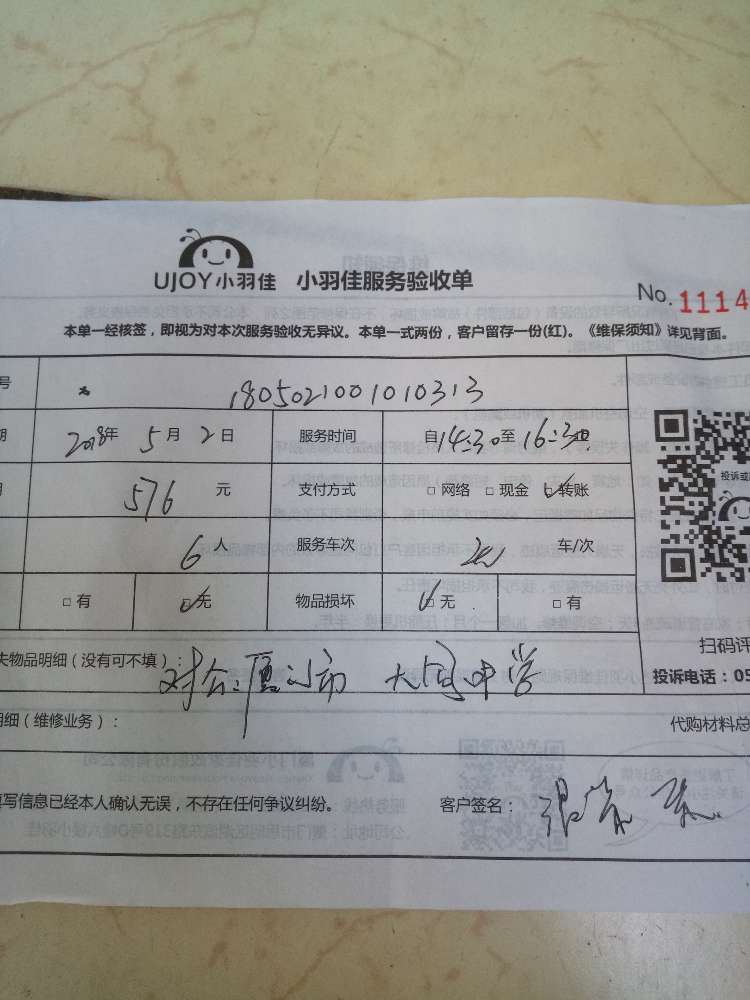 UJOY小羽佳 小羽佳服务验收单
No.1114
本单一经核签，即视为对本次服务验收无异议。本单一式两份，客户留存一份(红)。《维保须知》详见背面。
号 1805021001010313
期 2018年 5月 2日 服务时间 自14:30至16:30
576 元 支付方式 □网络 □现金 □转账
投诉或
6人 服务车次 车/次
□有 □无 物品损坏 □无 □有
扫码评
失物品明细（没有可不填）：对公：厦门市 大同中学
投诉电话：05
明细（维修业务）： 代购材料总
填写信息已经本人确认无误，不存在任何争议纠纷。 客户签名：